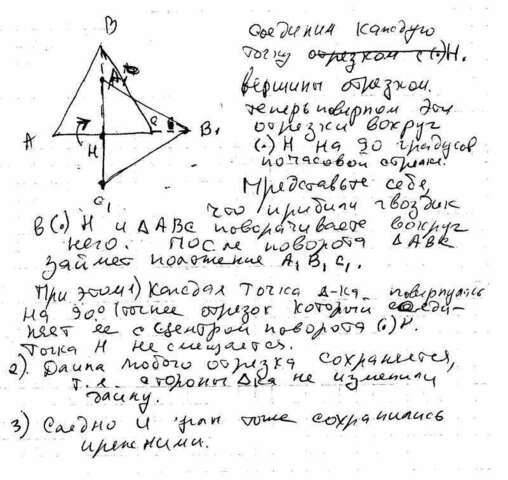 B
A₁
A
C
B₁
H
C₁
Соединим каждую
точку отрезком с (.)H.
вершины отрезком.
теперь повернем эти
отрезки вокруг
(.) H на 90 градусов
по часовой стрелк.
Представьте себе,
что прибили гвоздик
в (.) H и △ ABC поворачиваете вокруг
него. После поворота △ ABC
займет положение A₁ B₁ C₁.
При этом 1) Каждая точка △-ка повернулась
на 90° (точнее отрезок который соеди-
няет ее с центром поворота (.) H.
Точка H не смещается.
2). Длина любого отрезка сохраняется,
т.е. стороны △ка не изменили
длину.
3) Следно и углы тоже сохранились
прежними.